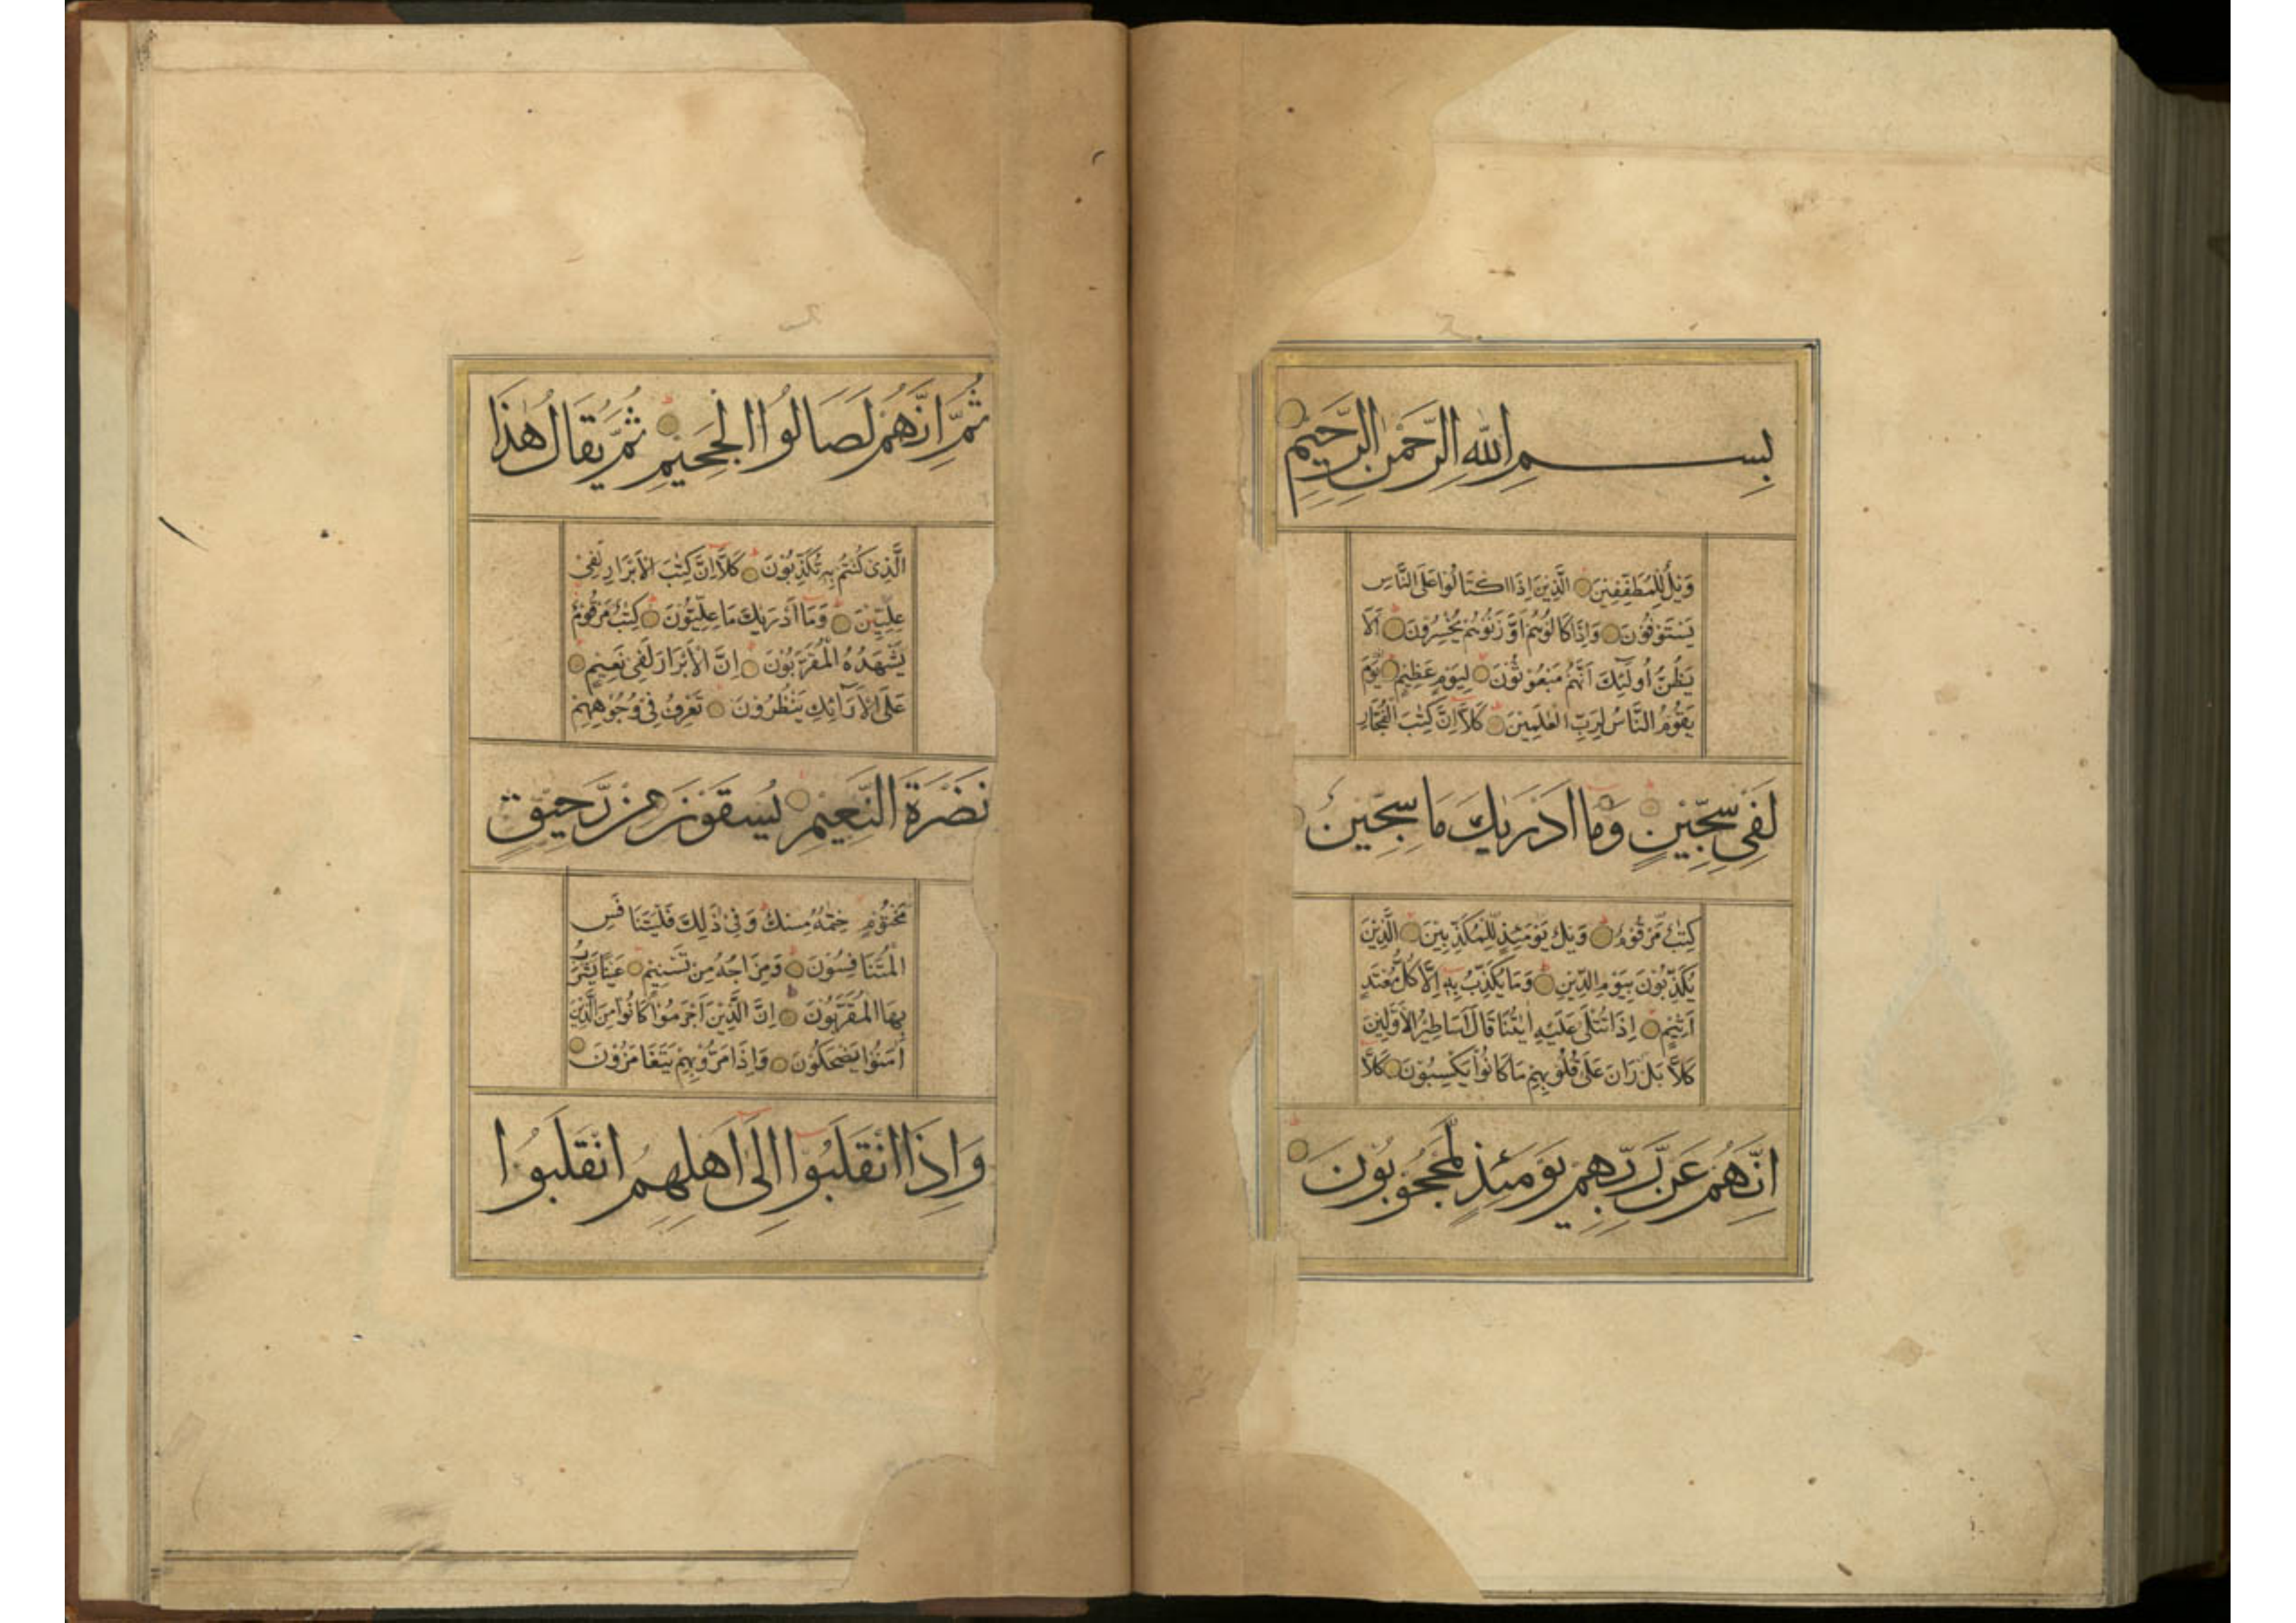 بِسْمِ اللهِ الرَّحْمٰنِ الرَّحِيْمِ
وَيْلٌ لِّلْمُطَفِّفِيْنَ الَّذِيْنَ اِذَا اكْتَالُوْا عَلَى النَّاسِ
يَسْتَوْفُوْنَ وَاِذَا كَالُوْهُمْ اَوْ وَّزَنُوْهُمْ يُخْسِرُوْنَ اَلَا
يَظُنُّ اُولٰٓئِكَ اَنَّهُمْ مَبْعُوْثُوْنَ لِيَوْمٍ عَظِيْمٍ يَوْمَ
يَقُوْمُ النَّاسُ لِرَبِّ الْعٰلَمِيْنَ كَلَّآ اِنَّ كِتٰبَ الْفُجَّارِ
لَفِيْ سِجِّيْنٍ وَمَآ اَدْرٰىكَ مَا سِجِّيْنٌ
كِتٰبٌ مَّرْقُوْمٌ وَيْلٌ يَّوْمَئِذٍ لِّلْمُكَذِّبِيْنَ الَّذِيْنَ
يُكَذِّبُوْنَ بِيَوْمِ الدِّيْنِ وَمَا يُكَذِّبُ بِهٖٓ اِلَّا كُلُّ مُعْتَدٍ
اَثِيْمٍ اِذَا تُتْلٰى عَلَيْهِ اٰيٰتُنَا قَالَ اَسَاطِيْرُ الْاَوَّلِيْنَ
كَلَّا بَلْ رَانَ عَلٰى قُلُوْبِهِمْ مَا كَانُوْا يَكْسِبُوْنَ كَلَّآ
اِنَّهُمْ عَنْ رَّبِّهِمْ يَوْمَئِذٍ لَّمَحْجُوْبُوْنَ
ثُمَّ اِنَّهُمْ لَصَالُوا الْجَحِيْمِ ثُمَّ يُقَالُ هٰذَا
الَّذِيْ كُنْتُمْ بِهٖ تُكَذِّبُوْنَ كَلَّآ اِنَّ كِتٰبَ الْاَبْرَارِ لَفِيْ
عِلِّيِّيْنَ وَمَآ اَدْرٰىكَ مَا عِلِّيُّوْنَ كِتٰبٌ مَّرْقُوْمٌ
يَشْهَدُهُ الْمُقَرَّبُوْنَ اِنَّ الْاَبْرَارَ لَفِيْ نَعِيْمٍ
عَلَى الْاَرَآئِكِ يَنْظُرُوْنَ تَعْرِفُ فِيْ وُجُوْهِهِمْ
نَضْرَةَ النَّعِيْمِ يُسْقَوْنَ مِنْ رَّحِيْقٍ
مَخْتُوْمٍ خِتٰمُهٗ مِسْكٌ وَفِيْ ذٰلِكَ فَلْيَتَنَافَسِ
الْمُتَنَافِسُوْنَ وَمِزَاجُهٗ مِنْ تَسْنِيْمٍ عَيْنًا يَّشْرَبُ
بِهَا الْمُقَرَّبُوْنَ اِنَّ الَّذِيْنَ اَجْرَمُوْا كَانُوْا مِنَ الَّذِيْنَ
اٰمَنُوْا يَضْحَكُوْنَ وَاِذَا مَرُّوْا بِهِمْ يَتَغَامَزُوْنَ
وَاِذَا انْقَلَبُوْٓا اِلٰٓى اَهْلِهِمُ انْقَلَبُوْا